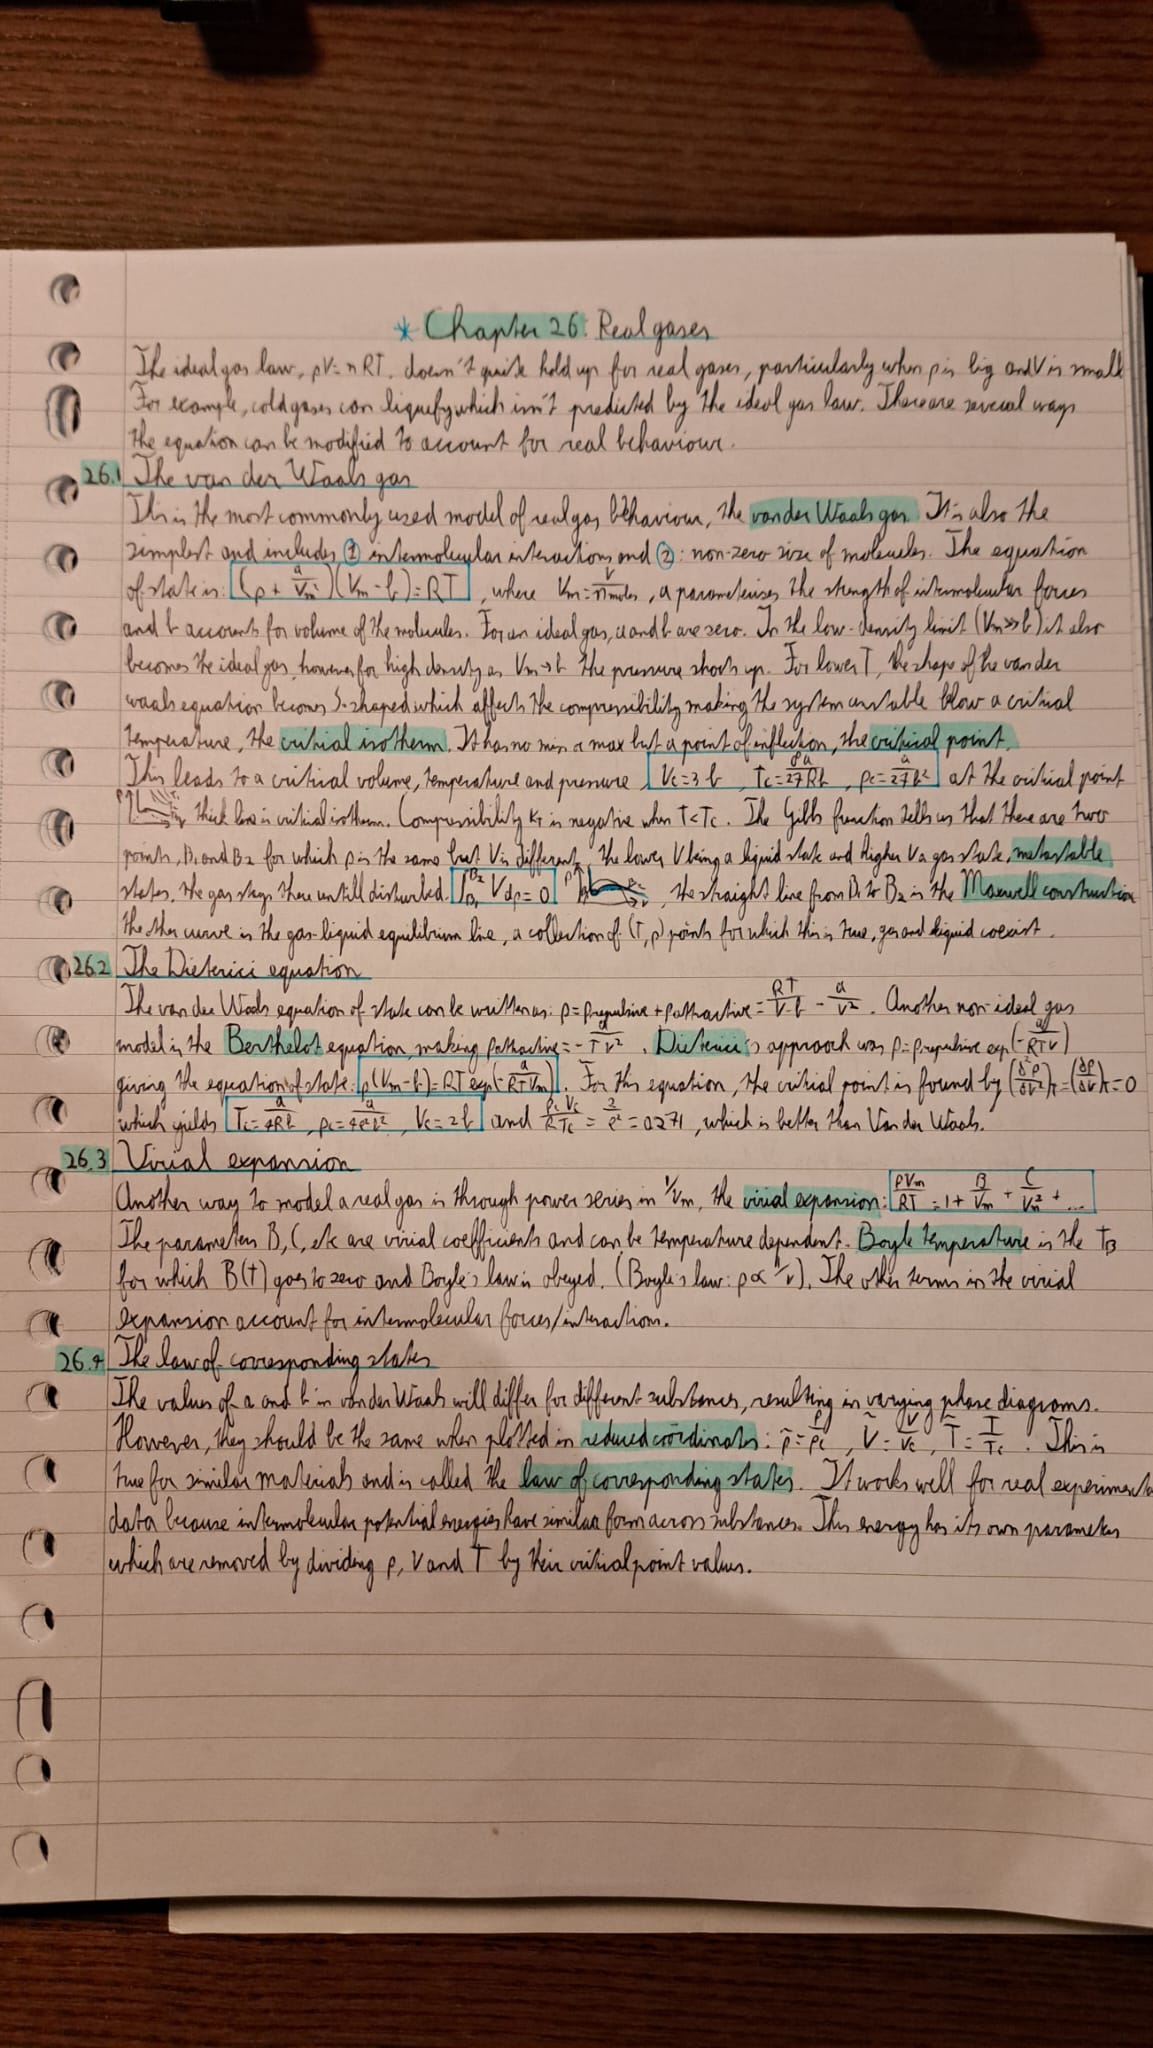 * Chapter 26: Real gases
The ideal gas law, pV = nRT, doesn't quite hold up for real gases, particularly when p is big and V is small
For example, cold gases can liquefy which isn't predicted by the ideal gas law. There are several ways
the equation can be modified to account for real behaviour.
26.1 The van der Waals gas
This is the most commonly used model of real gas behaviour, the van der Waals gas. It is also the
simplest and includes ① intermolecular interactions and ②: non-zero size of molecules. The equation
of state is: (p + a/Vm²)(Vm - b) = RT, where Vm = V/n moles, a parameterises the strength of intermolecular forces
and b accounts for volume of the molecules. For an ideal gas, a and b are zero. In the low-density limit (Vm >> b) it also
becomes the ideal gas, however for high density as Vm → b the pressure shoots up. For lower T, the shape of the van der
waals equation becomes S-shaped which affects the compressibility making the system unstable blow a critical
temperature, the critical isotherm. It has no min or max but a point of inflection, the critical point.
This leads to a critical volume, temperature and pressure Vc = 3b Tc = 8a/27Rb, pc = a/27b² at the critical point
thick line is critical isotherm. Compressibility κT is negative when T < Tc. The Gibbs function tells us that there are two
points, B1 and B2 for which p is the same but V is different, the lower V being a liquid state and higher V a gas state, metastable
states, the gas stays there untill disturbed. ∫B1^B2 V dp = 0 , the straight line from B1 to B2 is the Maxwell construction
the other curve is the gas-liquid equilibrium line, a collection of (T, p) points for which this is true, gas and liquid coexist.
26.2 The Dieterici equation
The van der Waals equation of state can be written as: p = prepulsive + pattractive = RT/V-b - a/V². Another non-ideal gas
model is the Berthelot equation, making pattractive = - a/TV². Dieterici's approach was p = prepulsive exp(-a/RTV)
giving the equation of state: p(Vm - b) = RT exp(-a/RTVm). For this equation, the critical point is found by (∂²p/∂V²)T = (∂p/∂V)T = 0
which yields Tc = a/4Rb, pc = a/4e²b², Vc = 2b and pcVc/RTc = 2/e² = 0.271, which is better than Van der Waals.
26.3 Virial expansion
Another way to model a real gas is through power series in 1/Vm, the virial expansion: pVm/RT = 1 + B/Vm + C/Vm² + ...
The parameters B, C, etc are virial coefficients and can be temperature dependent. Boyle temperature is the TB
for which B(T) goes to zero and Boyle's law is obeyed. (Boyle's law: p ∝ 1/V). The other terms in the virial
expansion account for intermolecular forces/interactions.
26.4 The law of corresponding states
The values of a and b in van der Waals will differ for different substances, resulting in varying phase diagrams.
However, they should be the same when plotted in reduced coordinates: p̃ = p/pc, Ṽ = V/Vc, T̃ = T/Tc. This is
true for similar materials and is called the law of corresponding states. It works well for real experimental
data because intermolecular potential energies have similar form across substances. This energy has its own parameters
which are removed by dividing p, V and T by their critical point values.